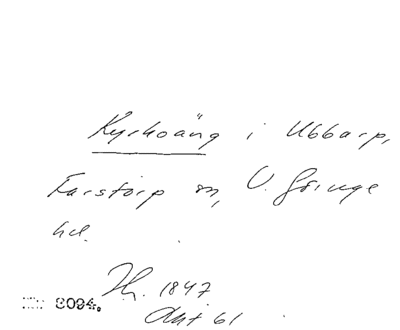 Kyrkoäng i Ubbarp,
Farstorp sn, V. Göinge
hd.
Hr. 1847
Akt 61
8094.